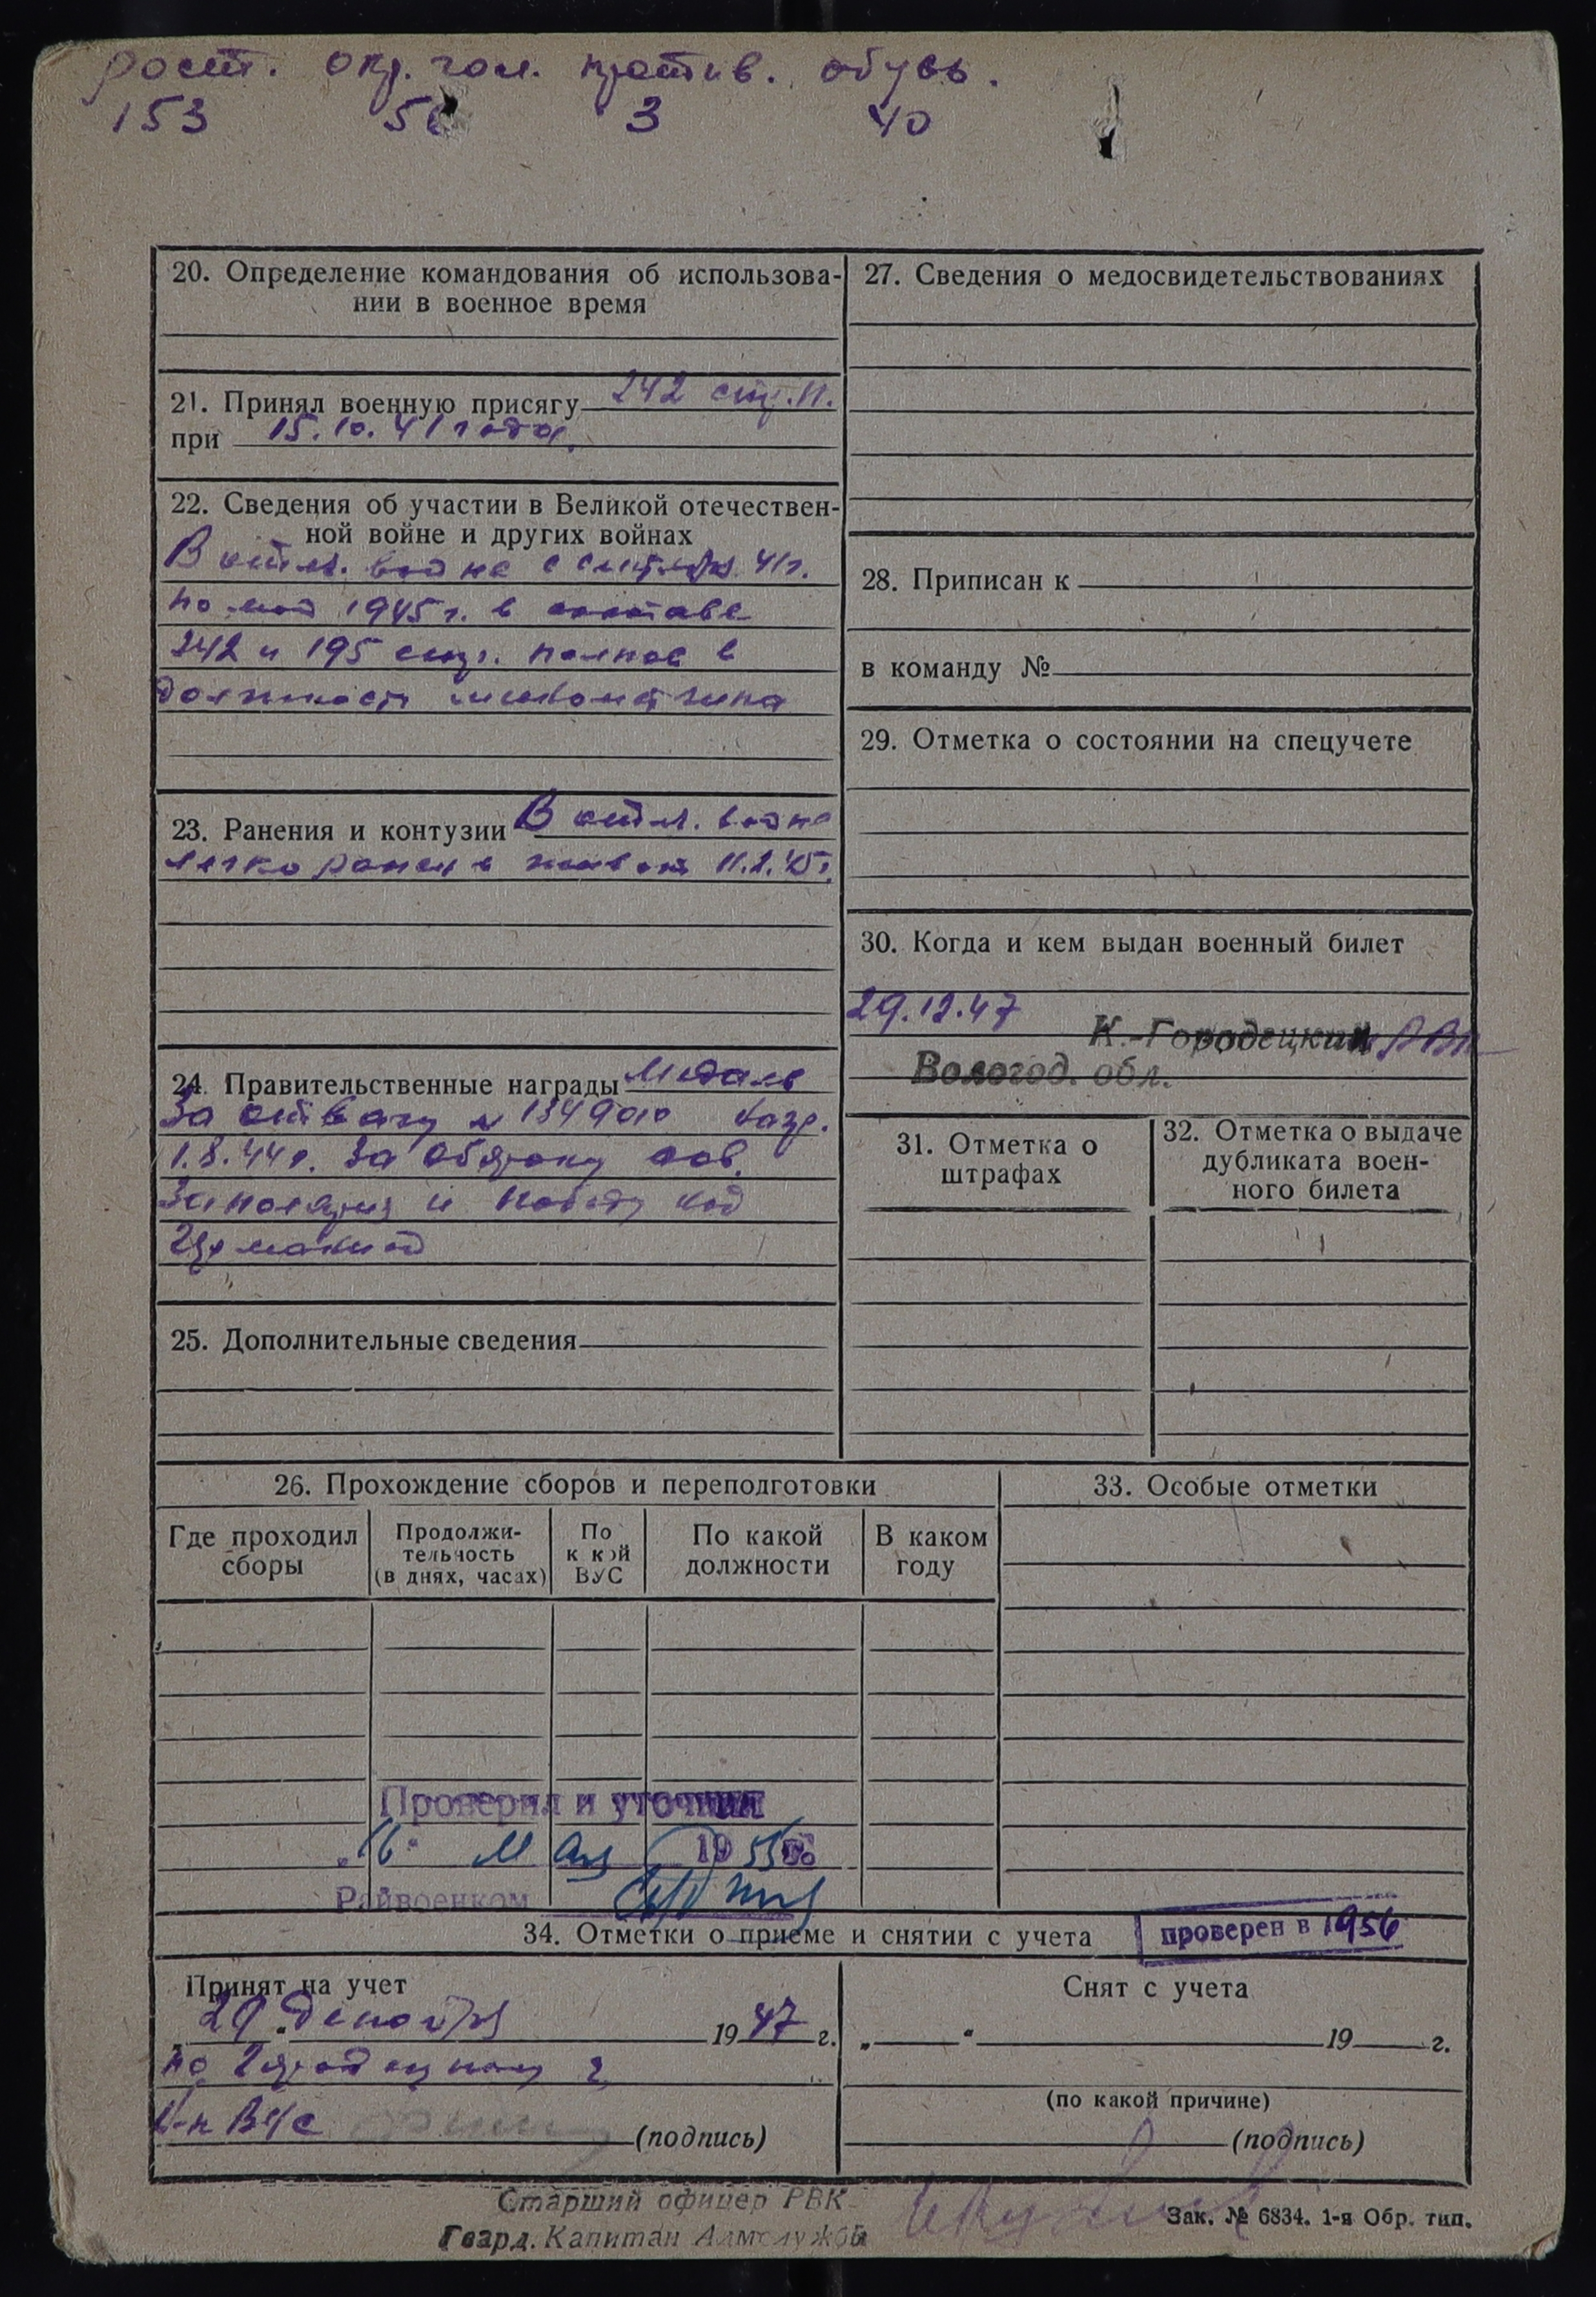 рост. окр. гол. против. обувь.
153 56 3 40
20. Определение командования об использова-
нии в военное время
21. Принял военную присягу 242 стр. п.
при 15.10.41 года.
22. Сведения об участии в Великой отечествен-
ной войне и других войнах
В отеч. войне с сентября 41 г.
по май 1945 г. в составе
242 и 195 стр. полков в
должности минометчика
23. Ранения и контузии В отеч. войне
легко ранен в живот 11.2.45 г.
24. Правительственные награды Медаль
За отвагу № 1349010
1.8.44 г. За оборону сов.
Заполярия и победу над
Германией
25. Дополнительные сведения
27. Сведения о медосвидетельствованиях
28. Приписан к
в команду №
29. Отметка о состоянии на спецучете
30. Когда и кем выдан военный билет
29.12.47
К.-Городецким РВК
Вологод. обл.
31. Отметка о
штрафах
32. Отметка о выдаче
дубликата воен-
ного билета
26. Прохождение сборов и переподготовки
Где проходил
сборы
Продолжи-
тельность
(в днях, часах)
По
к кой
ВУС
По какой
должности
В каком
году
33. Особые отметки
Проверил и уточнил
„16“ Мая 1955 г.
Райвоенком
34. Отметки о приеме и снятии с учета
проверен в 1956
Принят на учет
„29“ декабря 1947 г.
(подпись)
Снят с учета
„ “ 19 г.
(по какой причине)
(подпись)
Старший офицер РВК
Гвард. Капитан Адм службы
Зак. № 6834. 1-я Обр. тип.